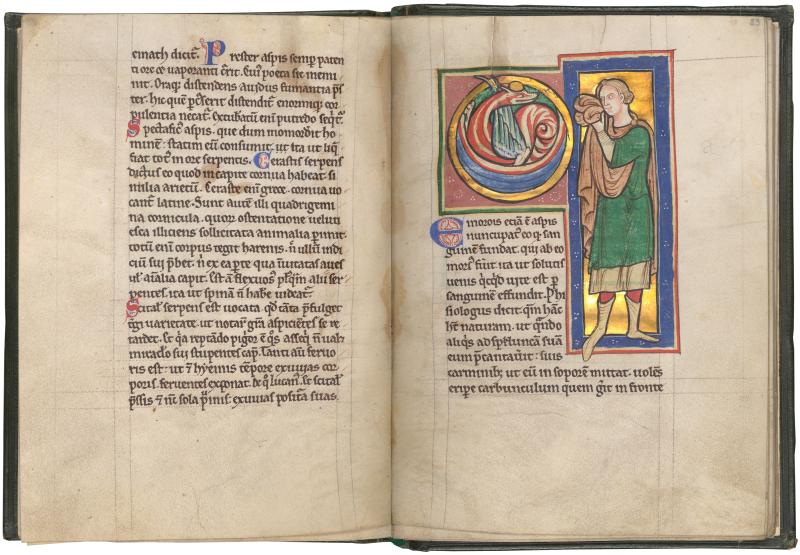 emath dicit. Prester aspis semp paten
ti ore & vaporanti c̄rit. Cui' poeta sic memi
nit. Oraq; distendens auidus fumantia p̄s
ter. hic quē p̄cusserit distendit enormiq; cor
pulentia necat. extubatū enī putredo seq̄t̄.
Spetafic' aspis. que dum momordit ho
minē: statim eum consumit. ut ita ut liq̄
fiat tot' in ore serpentis. Cerastis serpens
dict̄us eo quod in capite cornua habeat. si
milia arietum. Ceraste enī grece. cornua uo
cant latine. Sunt autē illi quadrigemi
na cornicula. quor ostentatione ueluti
esca illiciens sollicitata animalia p̄imit.
totū enī corpus tegit harenis. n̄ ullū indi
ciū sui p̄bet. n̄ ex ea parte qua inuitatas aues
uł aīalia capit. Est aū flexuos' plusq̄m alii ser
pentes. ita ut spinā n̄ habē uideat̄.
Scital' serpens est uocata. qd tāta p̄fulget
t̄gi uarietate. ut notar gr̄a aspiciētes se re
tardet. Et q̄a reptādo pigrior ē q̄s asseq̄ n̄ ual&
miraclo sui stupentes cap̄. Tanti aū feruo
ris est: ut & hyēmis tēpore exuuias cor
poris feruentes exponat. De q̄ lucan'. Et scital'
sparsis & nūc sola p̄inis. exuuias positura suas.
Emorois eciā ē aspis
nuncupat' eo q; san
guinē sundat. qui ab eo
mors' fūit. ita ut solutis
uenis q̄cq̄d uite est p̄
sanguinē effundit. Phi
siologus dicit. qm̄ hāc
h̄t naturam. ut q̄ndo
aliq̄s ad spelūncā suā
eum p̄cantauit: suis
carminib; ut eū in soporē mittat. uolēs
eripe carbunculum quem ḡit in fronte